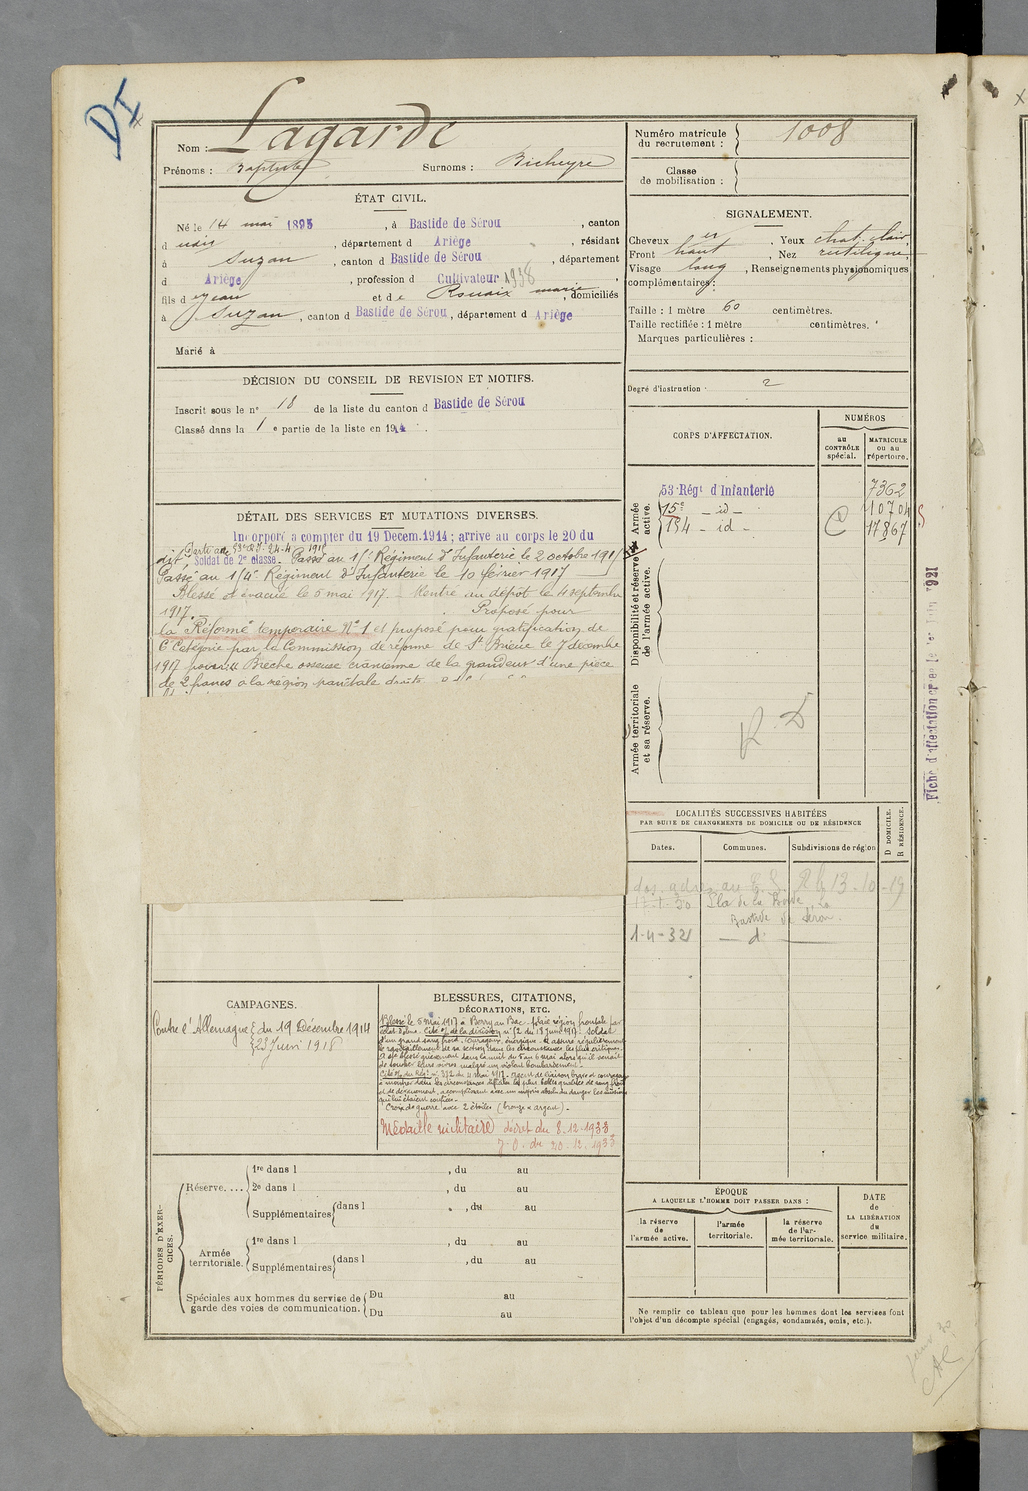 DI
Nom : Lagarde
Prénoms : Baptiste Surnoms : Bicheyre
Numéro matricule du recrutement : 1008
Classe de mobilisation :
ÉTAT CIVIL.
Né le 14 mai 1895, à Bastide de Sérou, canton
d udit, département d Ariège, résidant
à Suzan, canton d Bastide de Sérou, département
d Ariège, profession d Cultivateur 1938
fils d e Jean et d e Rouaix marie, domiciliés
à Suzan, canton d Bastide de Sérou, département d Ariège
Marié à
SIGNALEMENT.
Cheveux , Yeux chat. clair,
Front haut , Nez rectiligne
Visage long , Renseignements physionomiques
complémentaires :
Taille : 1 mètre 60 centimètres.
Taille rectifiée : 1 mètre centimètres.
Marques particulières :
Degré d'instruction : 2
DÉCISION DU CONSEIL DE REVISION ET MOTIFS.
Inscrit sous le n° 18 de la liste du canton d Bastide de Sérou
Classé dans la 1 e partie de la liste en 1914.
CORPS D'AFFECTATION.
NUMÉROS
au CONTRÔLE spécial.
MATRICULE ou au répertoire.
Armée active.
53 Régt d'Infanterie 7362
15e _ id _ 10704
154 _ id _ 17867
Disponibilité et réserve de l'armée active.
Armée territoriale et sa réserve.
R. D
Fiche d'affectation le 1er Juin 1921
DÉTAIL DES SERVICES ET MUTATIONS DIVERSES.
Incorporé à compter du 19 Décem. 1914 ; arrivé au corps le 20 du
dit Soldat de 2e classe. Passé au 15e Régiment d'Infanterie le 2 octobre 1915
Passé au 154e Régiment d'Infanterie le 10 février 1917
Blessé et évacué le 5 mai 1917 _ Rentré au dépôt le 4 septembre
1917. _ Proposé pour
la Réforme temporaire N° 1 et proposé pour gratification de
6e Catégorie par la Commission de réforme de St Brieuc le 7 décembre
1917 pour : Brèche osseuse crânienne de la grandeur d'une pièce
de 2 francs à la région pariétale droite.
LOCALITÉS SUCCESSIVES HABITÉES
PAR SUITE DE CHANGEMENTS DE DOMICILE OU DE RÉSIDENCE
Dates.
Communes.
Subdivisions de région
D DOMICILE.
R RÉSIDENCE.
13-10-19
Pla de la , La
Bastide de Sérou.
1-4-32 _ d° _
CAMPAGNES.
Contre l'Allemagne { du 19 Décembre 1914
BLESSURES, CITATIONS,
DÉCORATIONS, ETC.
Blessé le 5 mai 1917 à Berry au Bac - plaie région frontale par
éclat d'obus. Cité o/ de la division n° 12 du 18 Juin 1917 : Soldat
d'un grand sang froid, courageux, énergique. A assuré régulièrement
le ravitaillement de sa section dans les circonstances les plus critiques.
A été blessé grièvement dans la nuit du 5 au 6 mai alors qu'il venait
de toucher leurs vivres malgré un violent bombardement.
qui lui étaient confiées.
Croix de guerre avec 2 étoiles (bronze et argent).
Médaille militaire décret du 8.12.1933
J.O. du 20.12.1933
PÉRIODES D'EXERCICES.
Réserve....
1re dans l , du au
2e dans l , du au
Supplémentaires dans l , du au
Armée territoriale.
1re dans l , du au
Supplémentaires dans l , du au
Spéciales aux hommes du service de garde des voies de communication.
Du au
Du au
ÉPOQUE
A LAQUELLE L'HOMME DOIT PASSER DANS :
la réserve de l'armée active.
l'armée territoriale.
la réserve de l'armée territoriale.
DATE de LA LIBÉRATION du service militaire.
Ne remplir ce tableau que pour les hommes dont les services font
l'objet d'un décompte spécial (engagés, condamnés, omis, etc.).